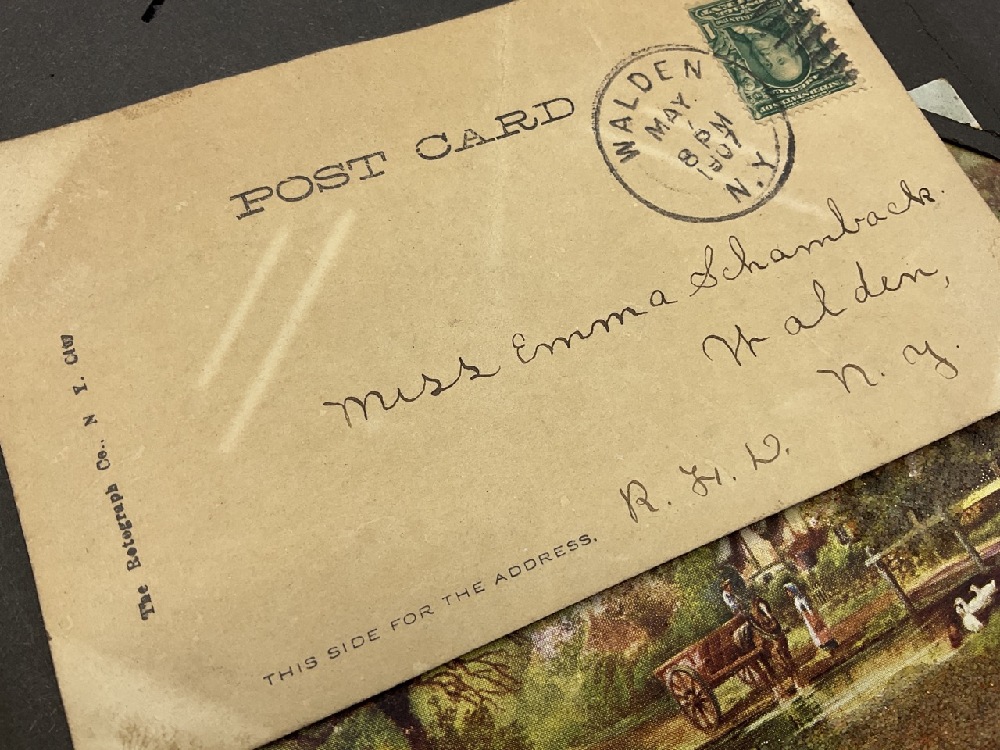 POST CARD
WALDEN
MAY
8 PM
1907
N.Y.
Miss Emma Schamback.
Walden,
N. Y.
R. F. D.
THIS SIDE FOR THE ADDRESS.
The Rotograph Co., N Y. City